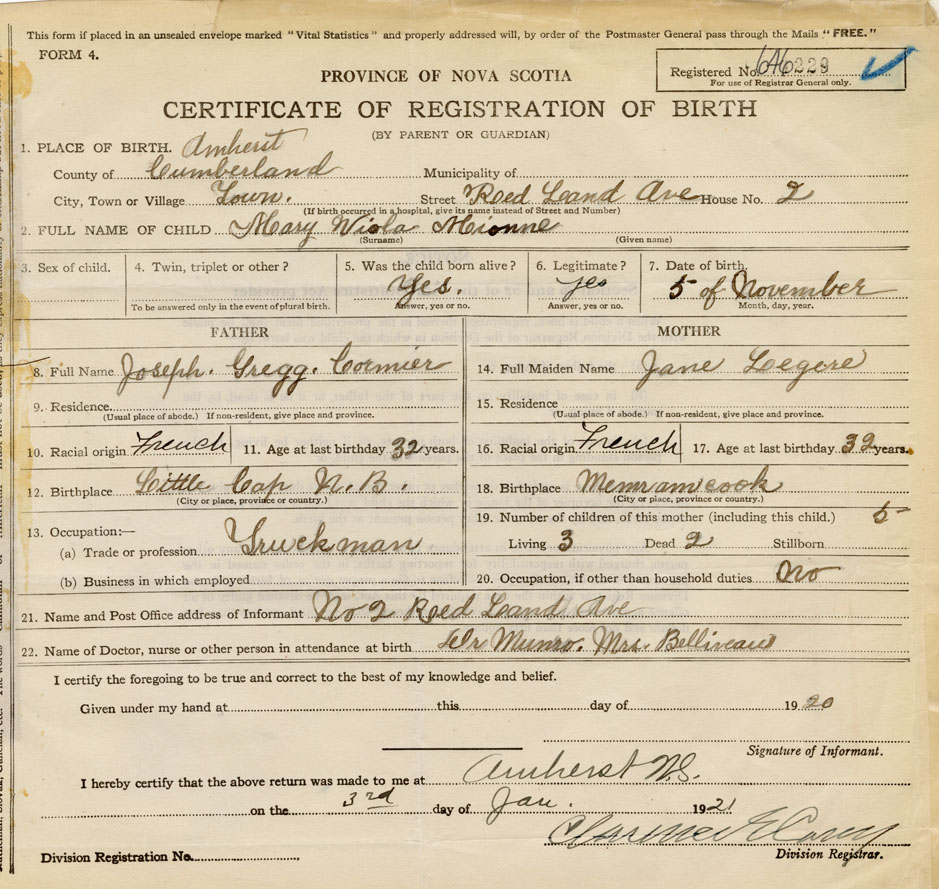 This form if placed in an unsealed envelope marked "Vital Statistics" and properly addressed will, by order of the Postmaster General pass through the Mails "FREE."
FORM 4.
Registered No. 646229
For use of Registrar General only.
PROVINCE OF NOVA SCOTIA
CERTIFICATE OF REGISTRATION OF BIRTH
(BY PARENT OR GUARDIAN)
1. PLACE OF BIRTH. Amherst
County of Cumberland Municipality of
City, Town or Village Town. Street Reed Leand Ave House No. 2
(If birth occurred in a hospital, give its name instead of Street and Number)
2. FULL NAME OF CHILD Mary Viola Mionne
(Surname) (Given name)
3. Sex of child. 4. Twin, triplet or other? 5. Was the child born alive? 6. Legitimate? 7. Date of birth.
Yes. yes 5 of November
To be answered only in the event of plural birth. Answer, yes or no. Answer, yes or no. Month, day, year.
FATHER MOTHER
8. Full Name Joseph. Gregg. Cormier 14. Full Maiden Name Jane Legere
9. Residence. 15. Residence.
(Usual place of abode.) If non-resident, give place and province. (Usual place of abode.) If non-resident, give place and province.
10. Racial origin French 11. Age at last birthday 32 years. 16. Racial origin French 17. Age at last birthday 32 years.
12. Birthplace Little Cap N.B. 18. Birthplace Memramcook
(City or place, province or country.) (City or place, province or country.)
13. Occupation:— 19. Number of children of this mother (including this child.) 5
(a) Trade or profession Truckman Living 3 Dead 2 Stillborn
(b) Business in which employed 20. Occupation, if other than household duties. No
21. Name and Post Office address of Informant No 2 Reed Leand Ave
22. Name of Doctor, nurse or other person in attendance at birth Dr Munro. Mrs. Belliveau
I certify the foregoing to be true and correct to the best of my knowledge and belief.
Given under my hand at this day of 1920
Signature of Informant.
I hereby certify that the above return was made to me at Amherst N.S.
on the 3rd day of Jan. 1921
Clarence E Casey
Division Registration No. Division Registrar.